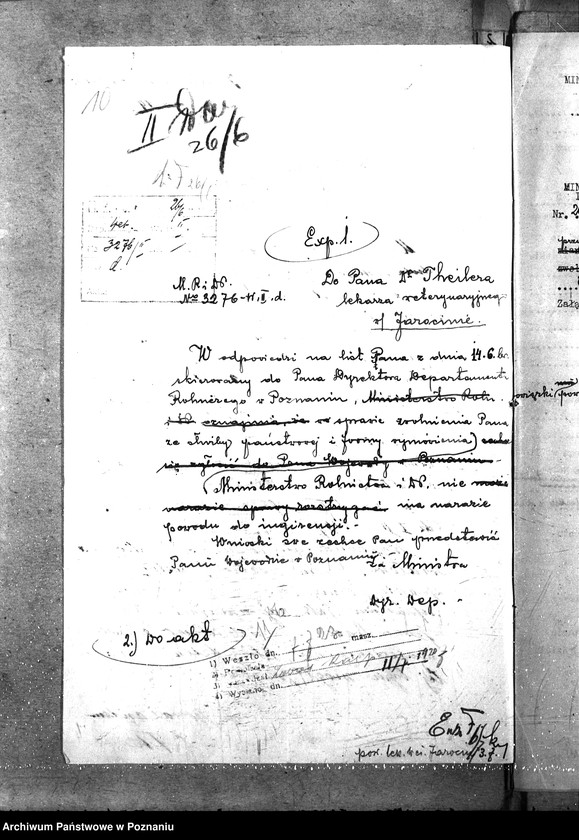 10
II
26/6
26
wet. II
3276/II
d.
Exp. 1.
M. R. i D.P.
No 3276-W.II.d.
Do Pana Dr Theilera
lekarza weterynaryjnego
w/ Jarocinie.
W odpowiedzi na list Pana z dnia 14.6. br.
skierowany do Pana Dyrektora Departamentu
Rolniczego w Poznaniu, Ministerstwo Roln.
i DP. oznajmia, że w sprawie zwolnienia Pana
ze służby państwowej i formy wymówienia zechce
się zgłosić do Pana Wojewody w Poznaniu
Ministerstwo Rolnictwa i DP. nie może
narazie sprawy rozstrzygać ma narazie
powodu do ingerencji.-
Wnioski swe zechce Pan przedstawić
Panu Wojewodzie w Poznaniu
za Ministra
Dyr. Dep. -
2.) Do akt
1) Weszło dn. masz.
2)
3)
4) Wysłano dn. II/7 1920
pow. lek. wet. Jarocin 3.7.
MIN
MIN
Nr. 2
Zał
Archiwum Państwowe w Poznaniu